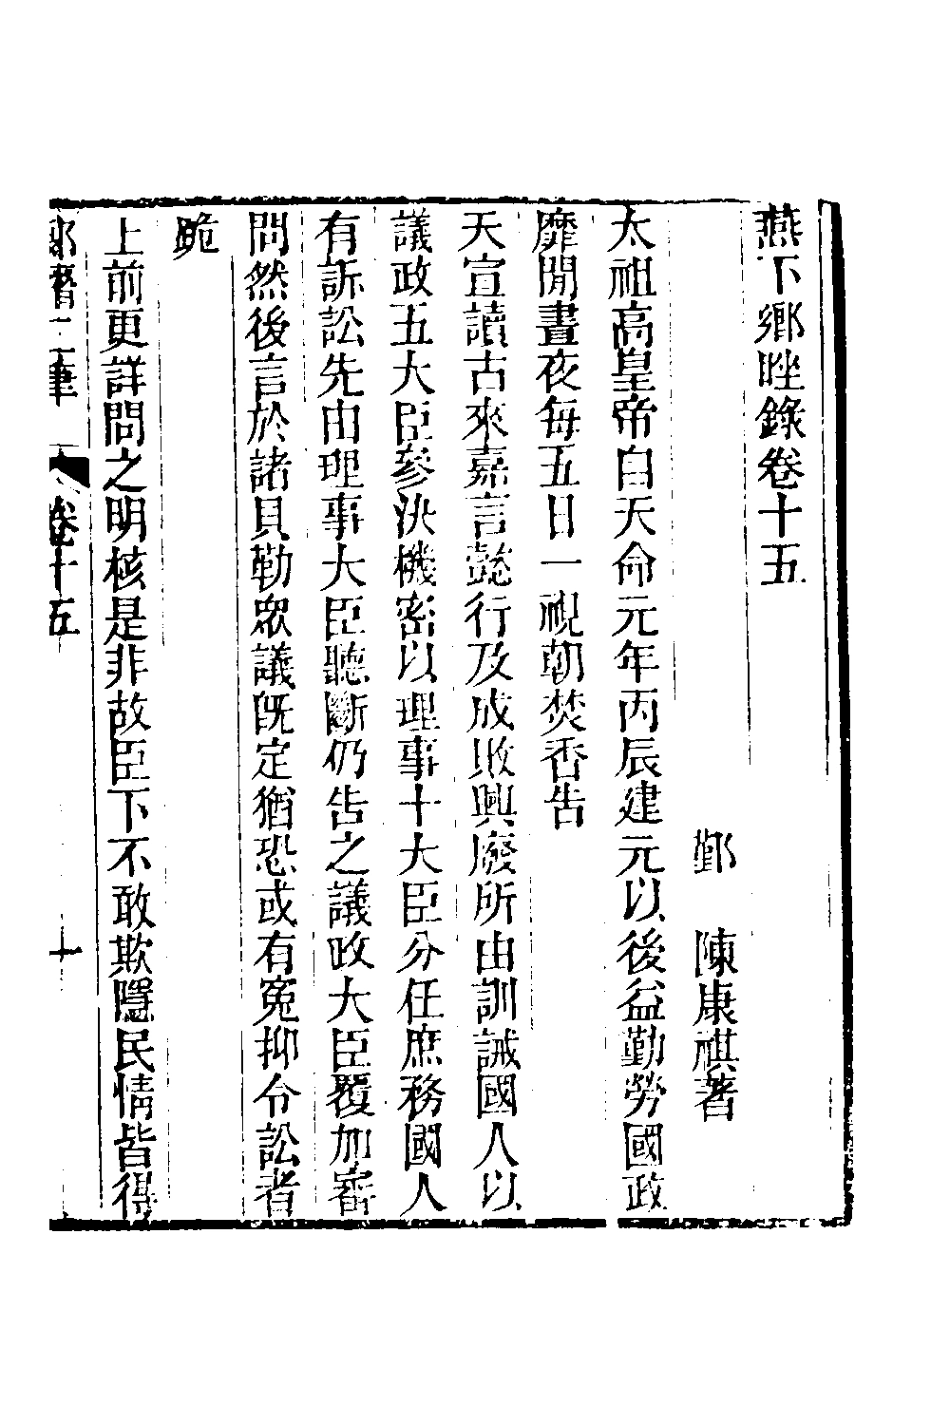 燕下鄉脞錄卷十五
鄞　陳康祺著
太祖高皇帝自天命元年丙辰建元以後益勤勞國政
靡閒晝夜每五日一視朝焚香告
天宣讀古來嘉言懿行及成敗興廢所由訓誡國人以
議政五大臣參決機密以理事十大臣分任庶務國人
有訴訟先由理事大臣聽斷仍告之議政大臣覆加審
問然後言於諸貝勒眾議既定猶恐或有冤抑令訟者
跪
上前更詳問之明核是非故臣下不敢欺隱民情皆得
郎潛二筆　卷十五　十